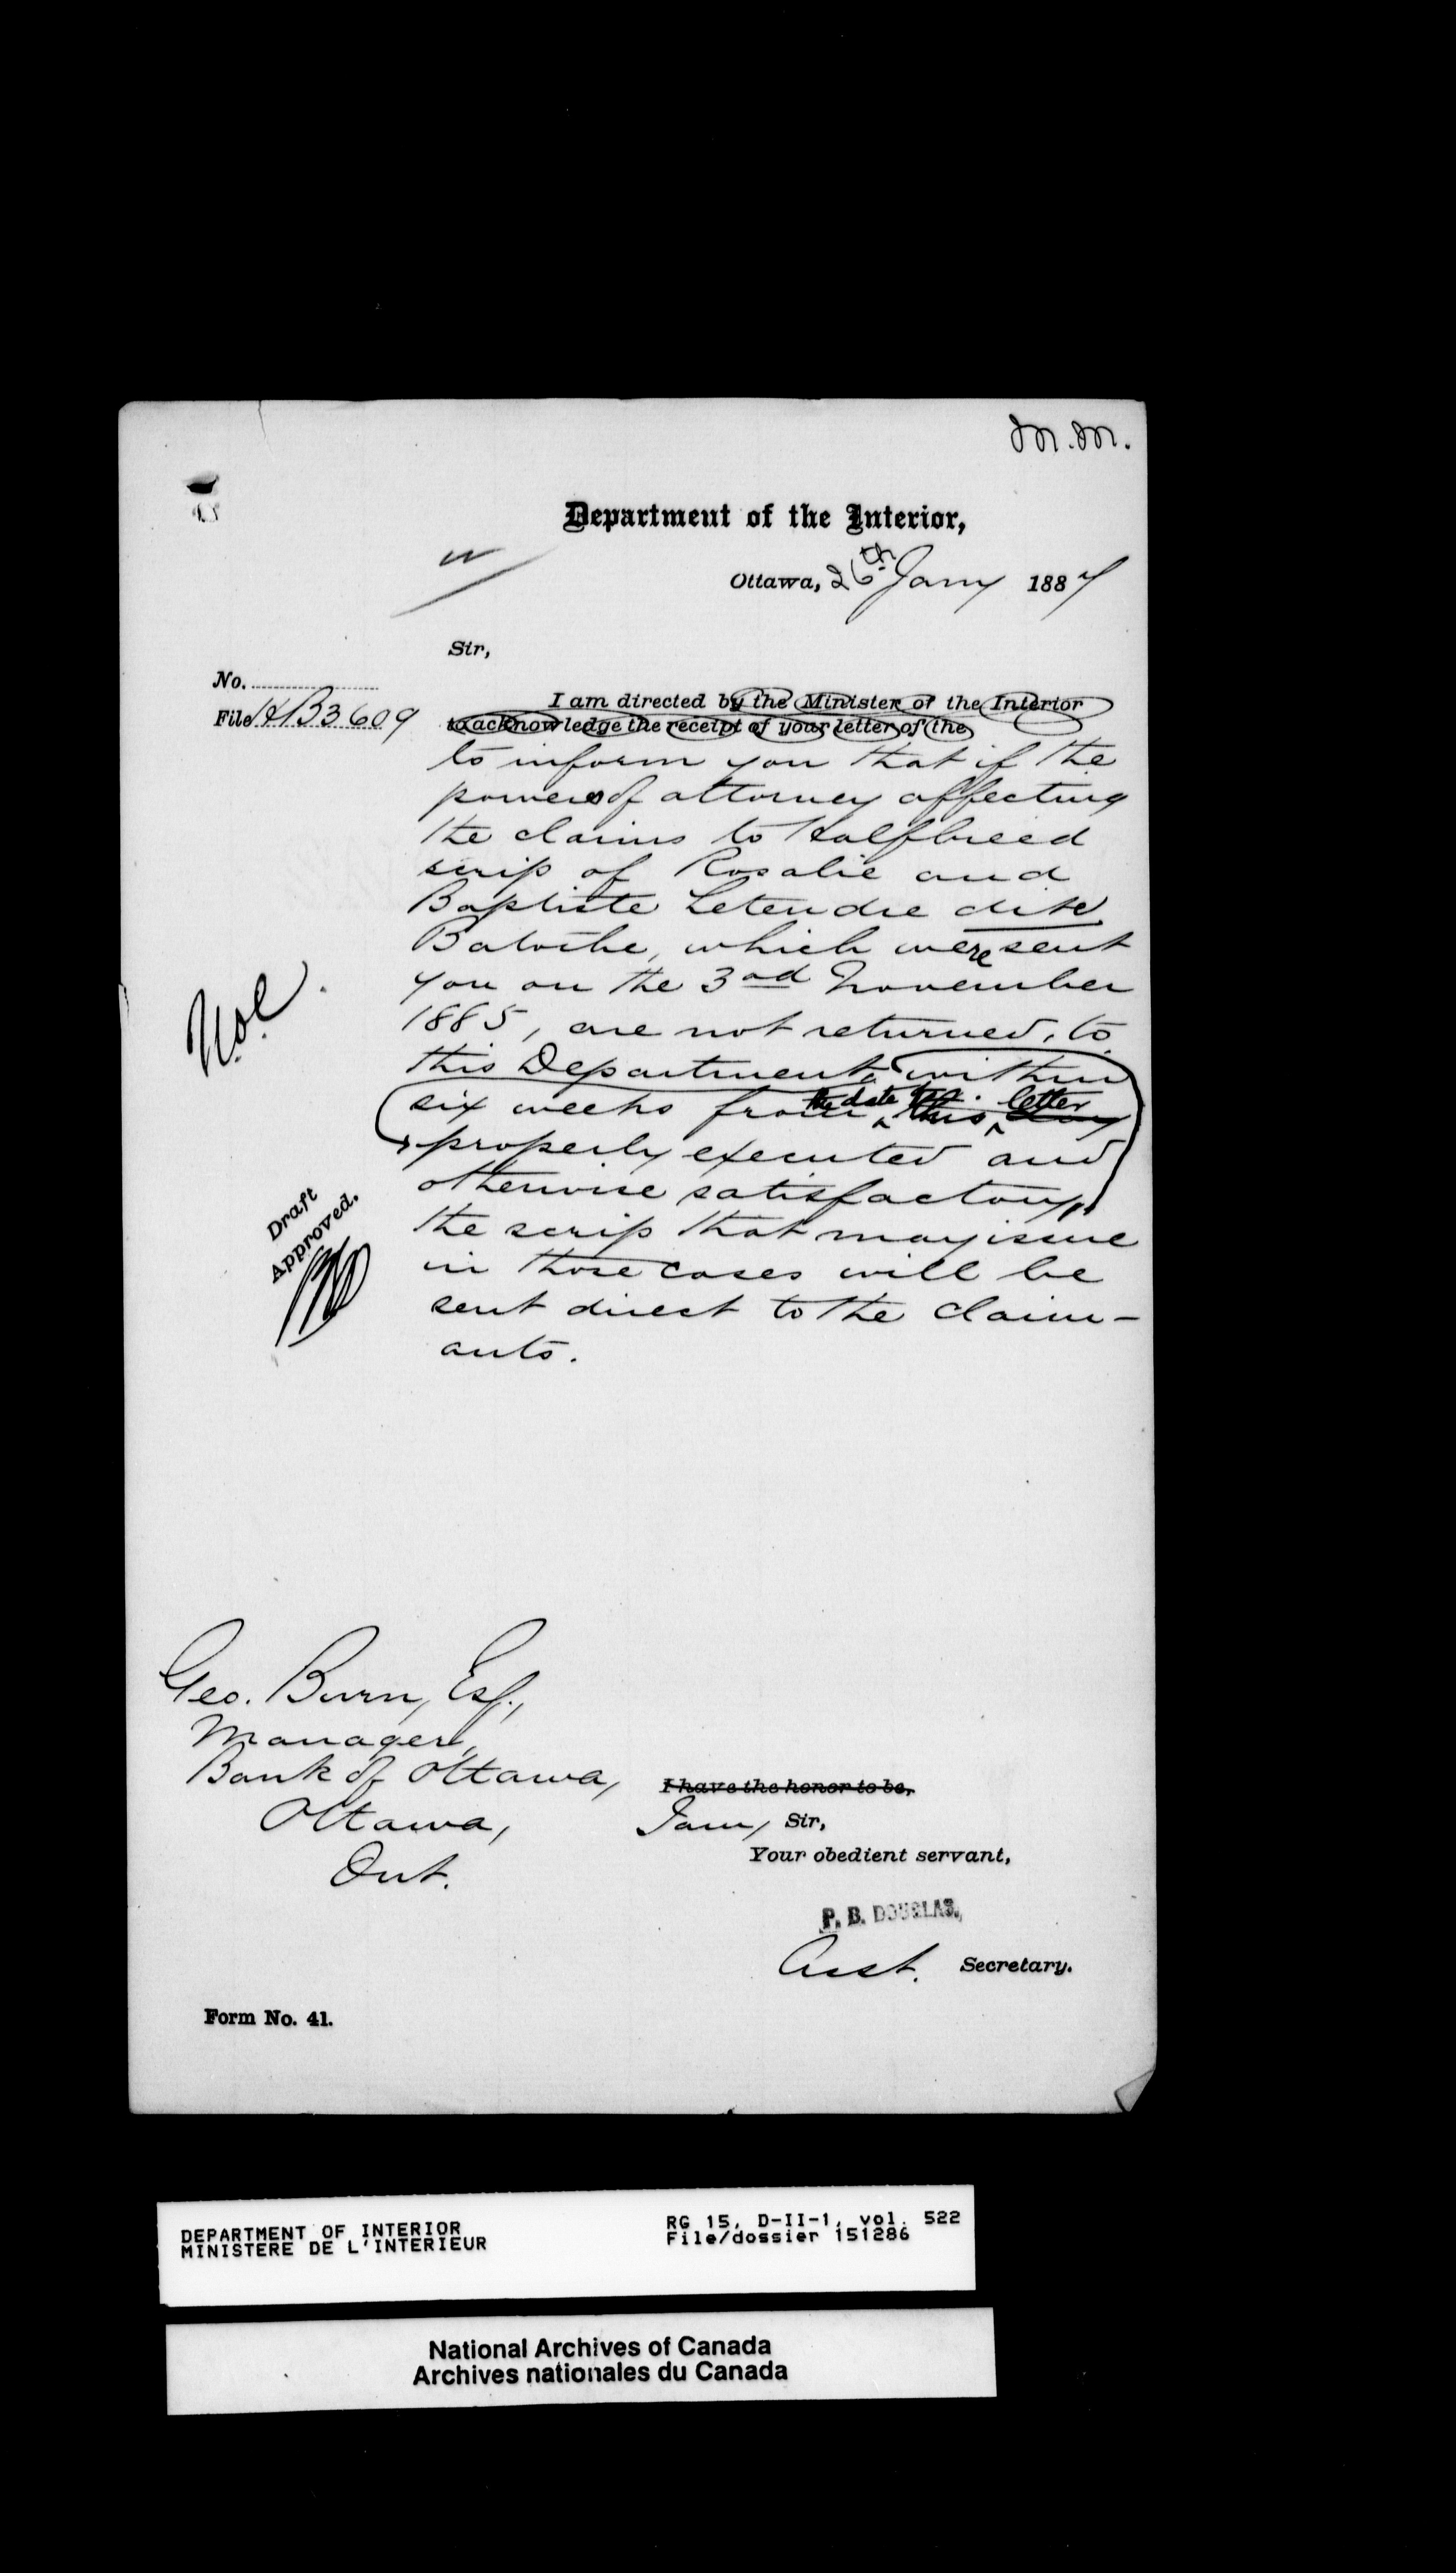 M.M.
Department of the Interior,
Ottawa, 26th Jany 1887
Sir,
No.
File HB3609
I am directed by the Minister of the Interior
to acknowledge the receipt of your letter of the
to inform you that if the
powers of attorney affecting
the claims to Halfbreed
scrip of Rosalie and
Baptiste Letendre dite
Batoche, which were sent
you on the 3rd November
1885, are not returned, to
this Department, within
six weeks from the date this letter
properly executed and
otherwise satisfactory,
the scrip that may issue
in those cases will be
sent direct to the claim-
ants.
Draft
Approved.
Geo. Burn, Esq.,
Manager,
Bank of Ottawa,
Ottawa,
Ont.
I have the honor to be,
I am, Sir,
Your obedient servant,
P. B. DOUGLAS,
Asst. Secretary.
Form No. 41.
DEPARTMENT OF INTERIOR
MINISTERE DE L'INTERIEUR
RG 15, D-II-1, vol. 522
File/dossier 151286
National Archives of Canada
Archives nationales du Canada